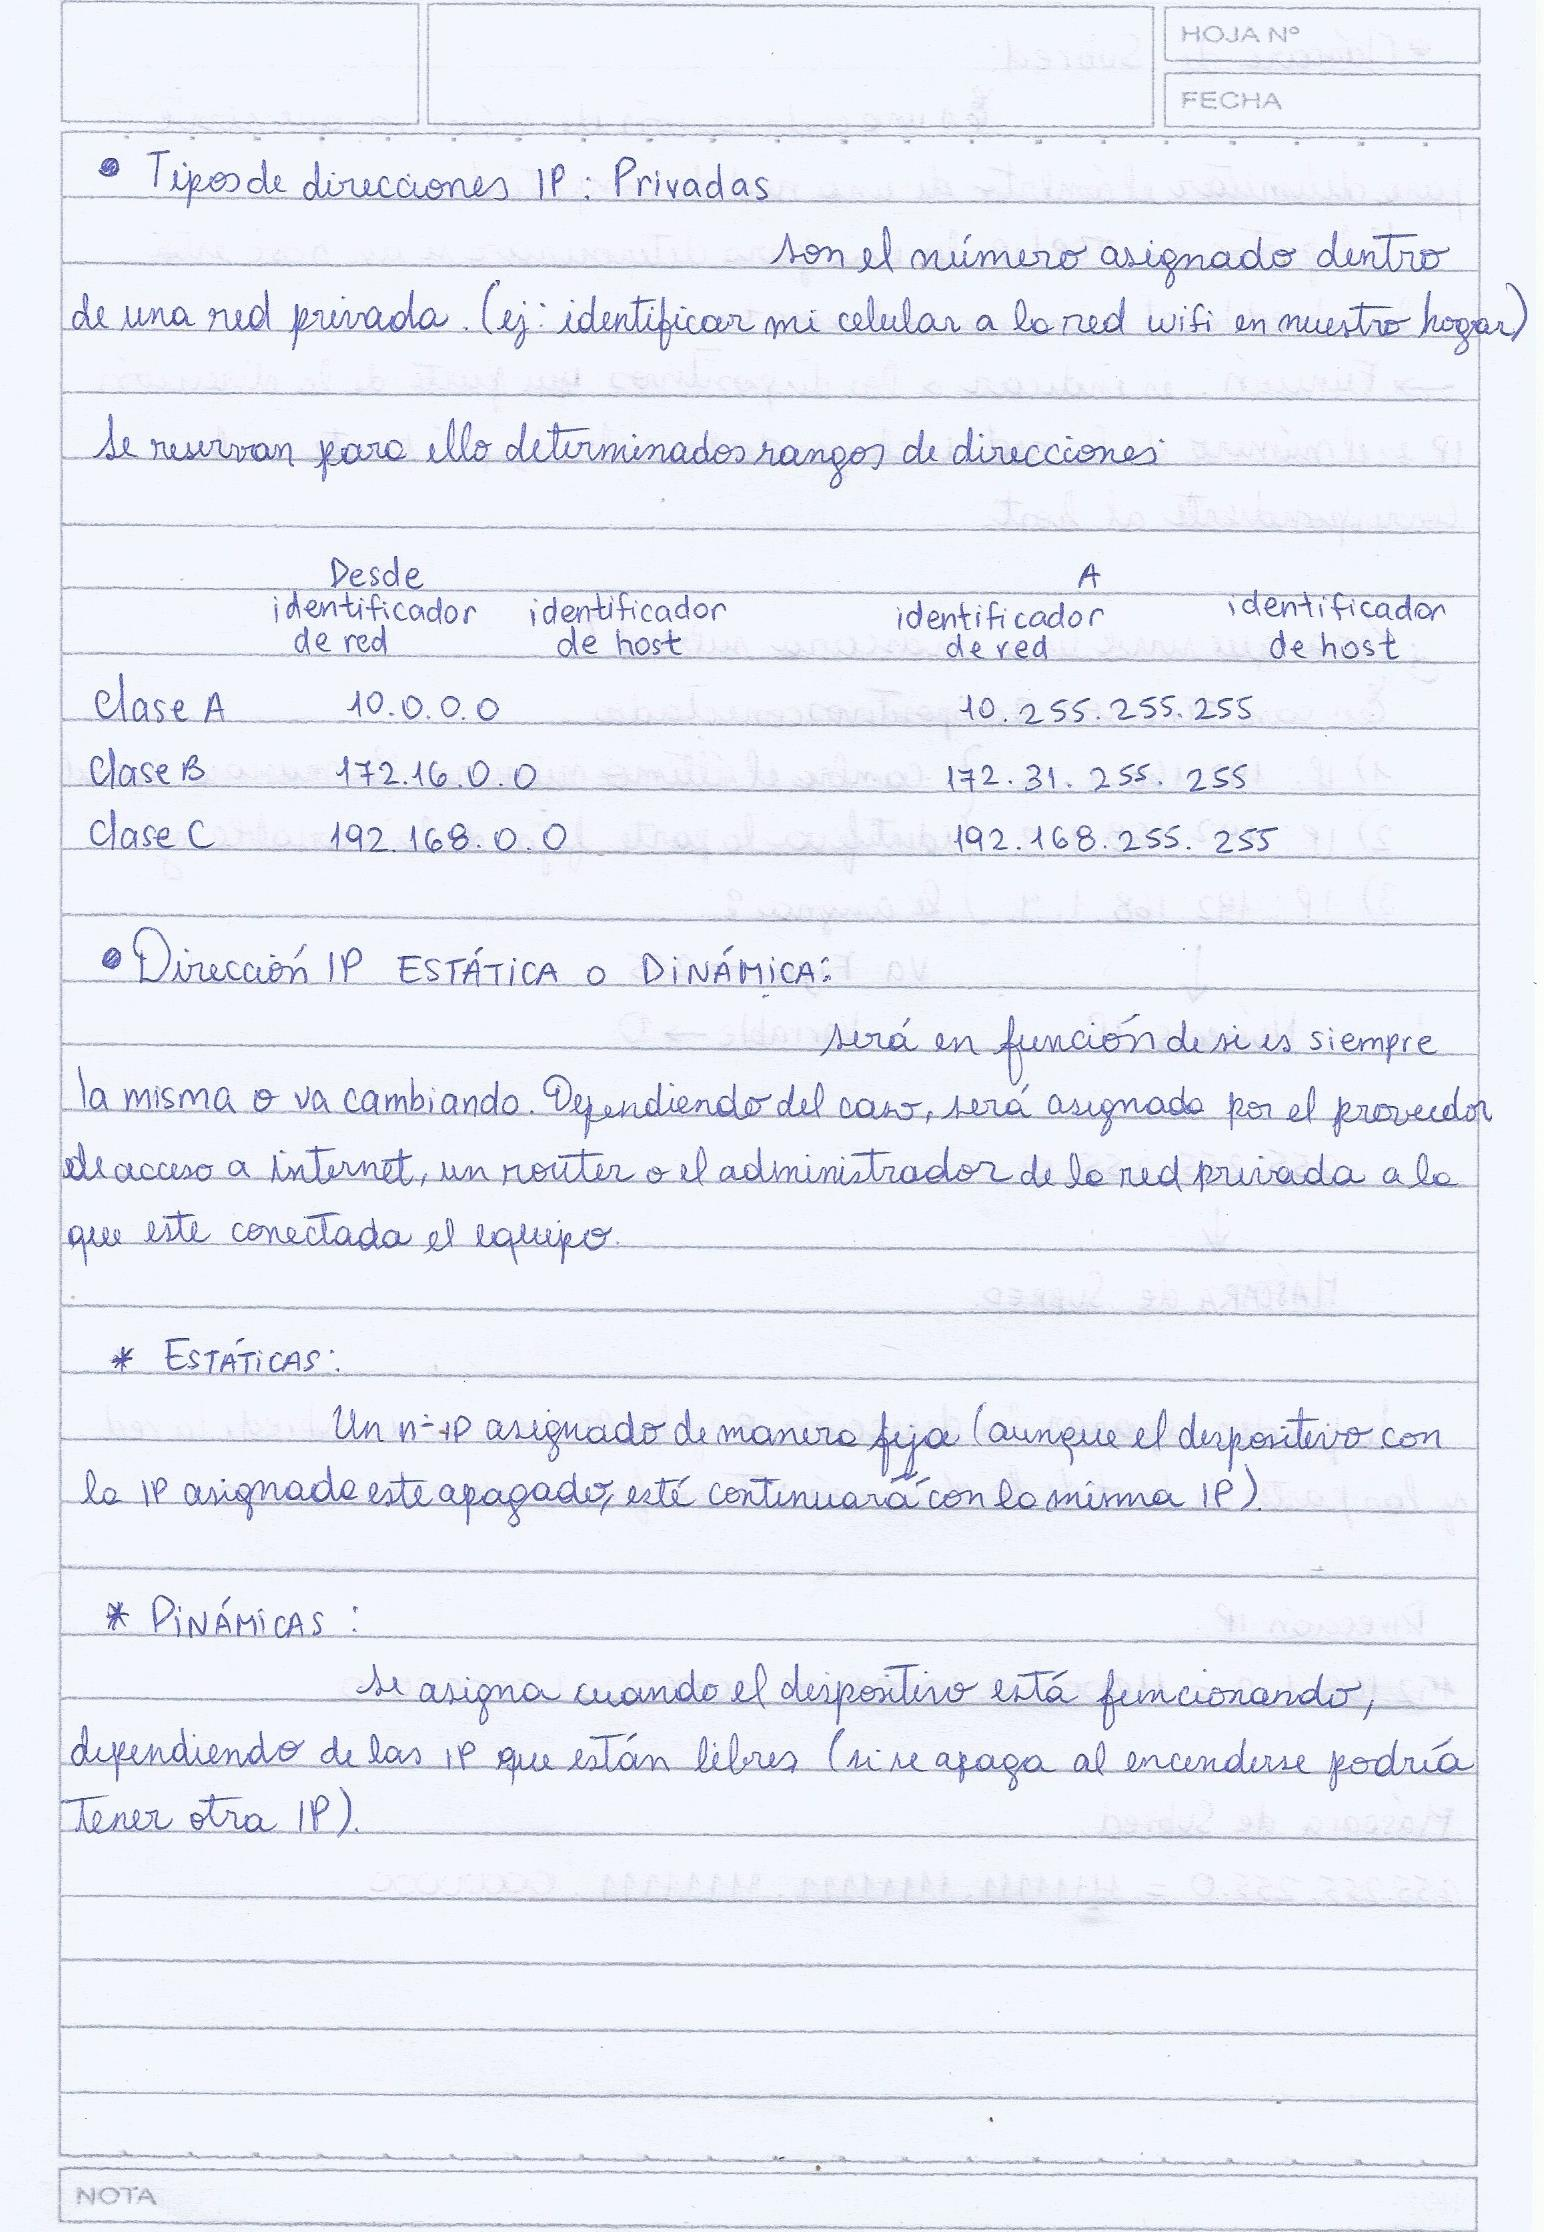 HOJA Nº
FECHA
• Tipos de direcciones IP: Privadas
son el número asignado dentro
de una red privada. (ej: identificar mi celular a la red wifi en nuestro hogar)
Se reservan para ello determinados rangos de direcciones
Desde A
identificador identificador identificador identificador
de red de host de red de host
Clase A 10.0.0.0 10.255.255.255
Clase B 172.16.0.0 172.31.255.255
Clase C 192.168.0.0 192.168.255.255
• Dirección IP ESTÁTICA o DINÁMICA:
será en función de si es siempre
la misma o va cambiando. Dependiendo del caso, será asignada por el proveedor
de acceso a internet, un router o el administrador de la red privada a la
que este conectada el equipo.
* ESTÁTICAS:
Un nº IP asignado de manera fija (aunque el dispositivo con
la IP asignada este apagado, esté continuará con la misma IP).
* DINÁMICAS:
Se asigna cuando el dispositivo está funcionando,
dependiendo de las IP que están libres (si se apaga al encenderse podría
tener otra IP).
NOTA